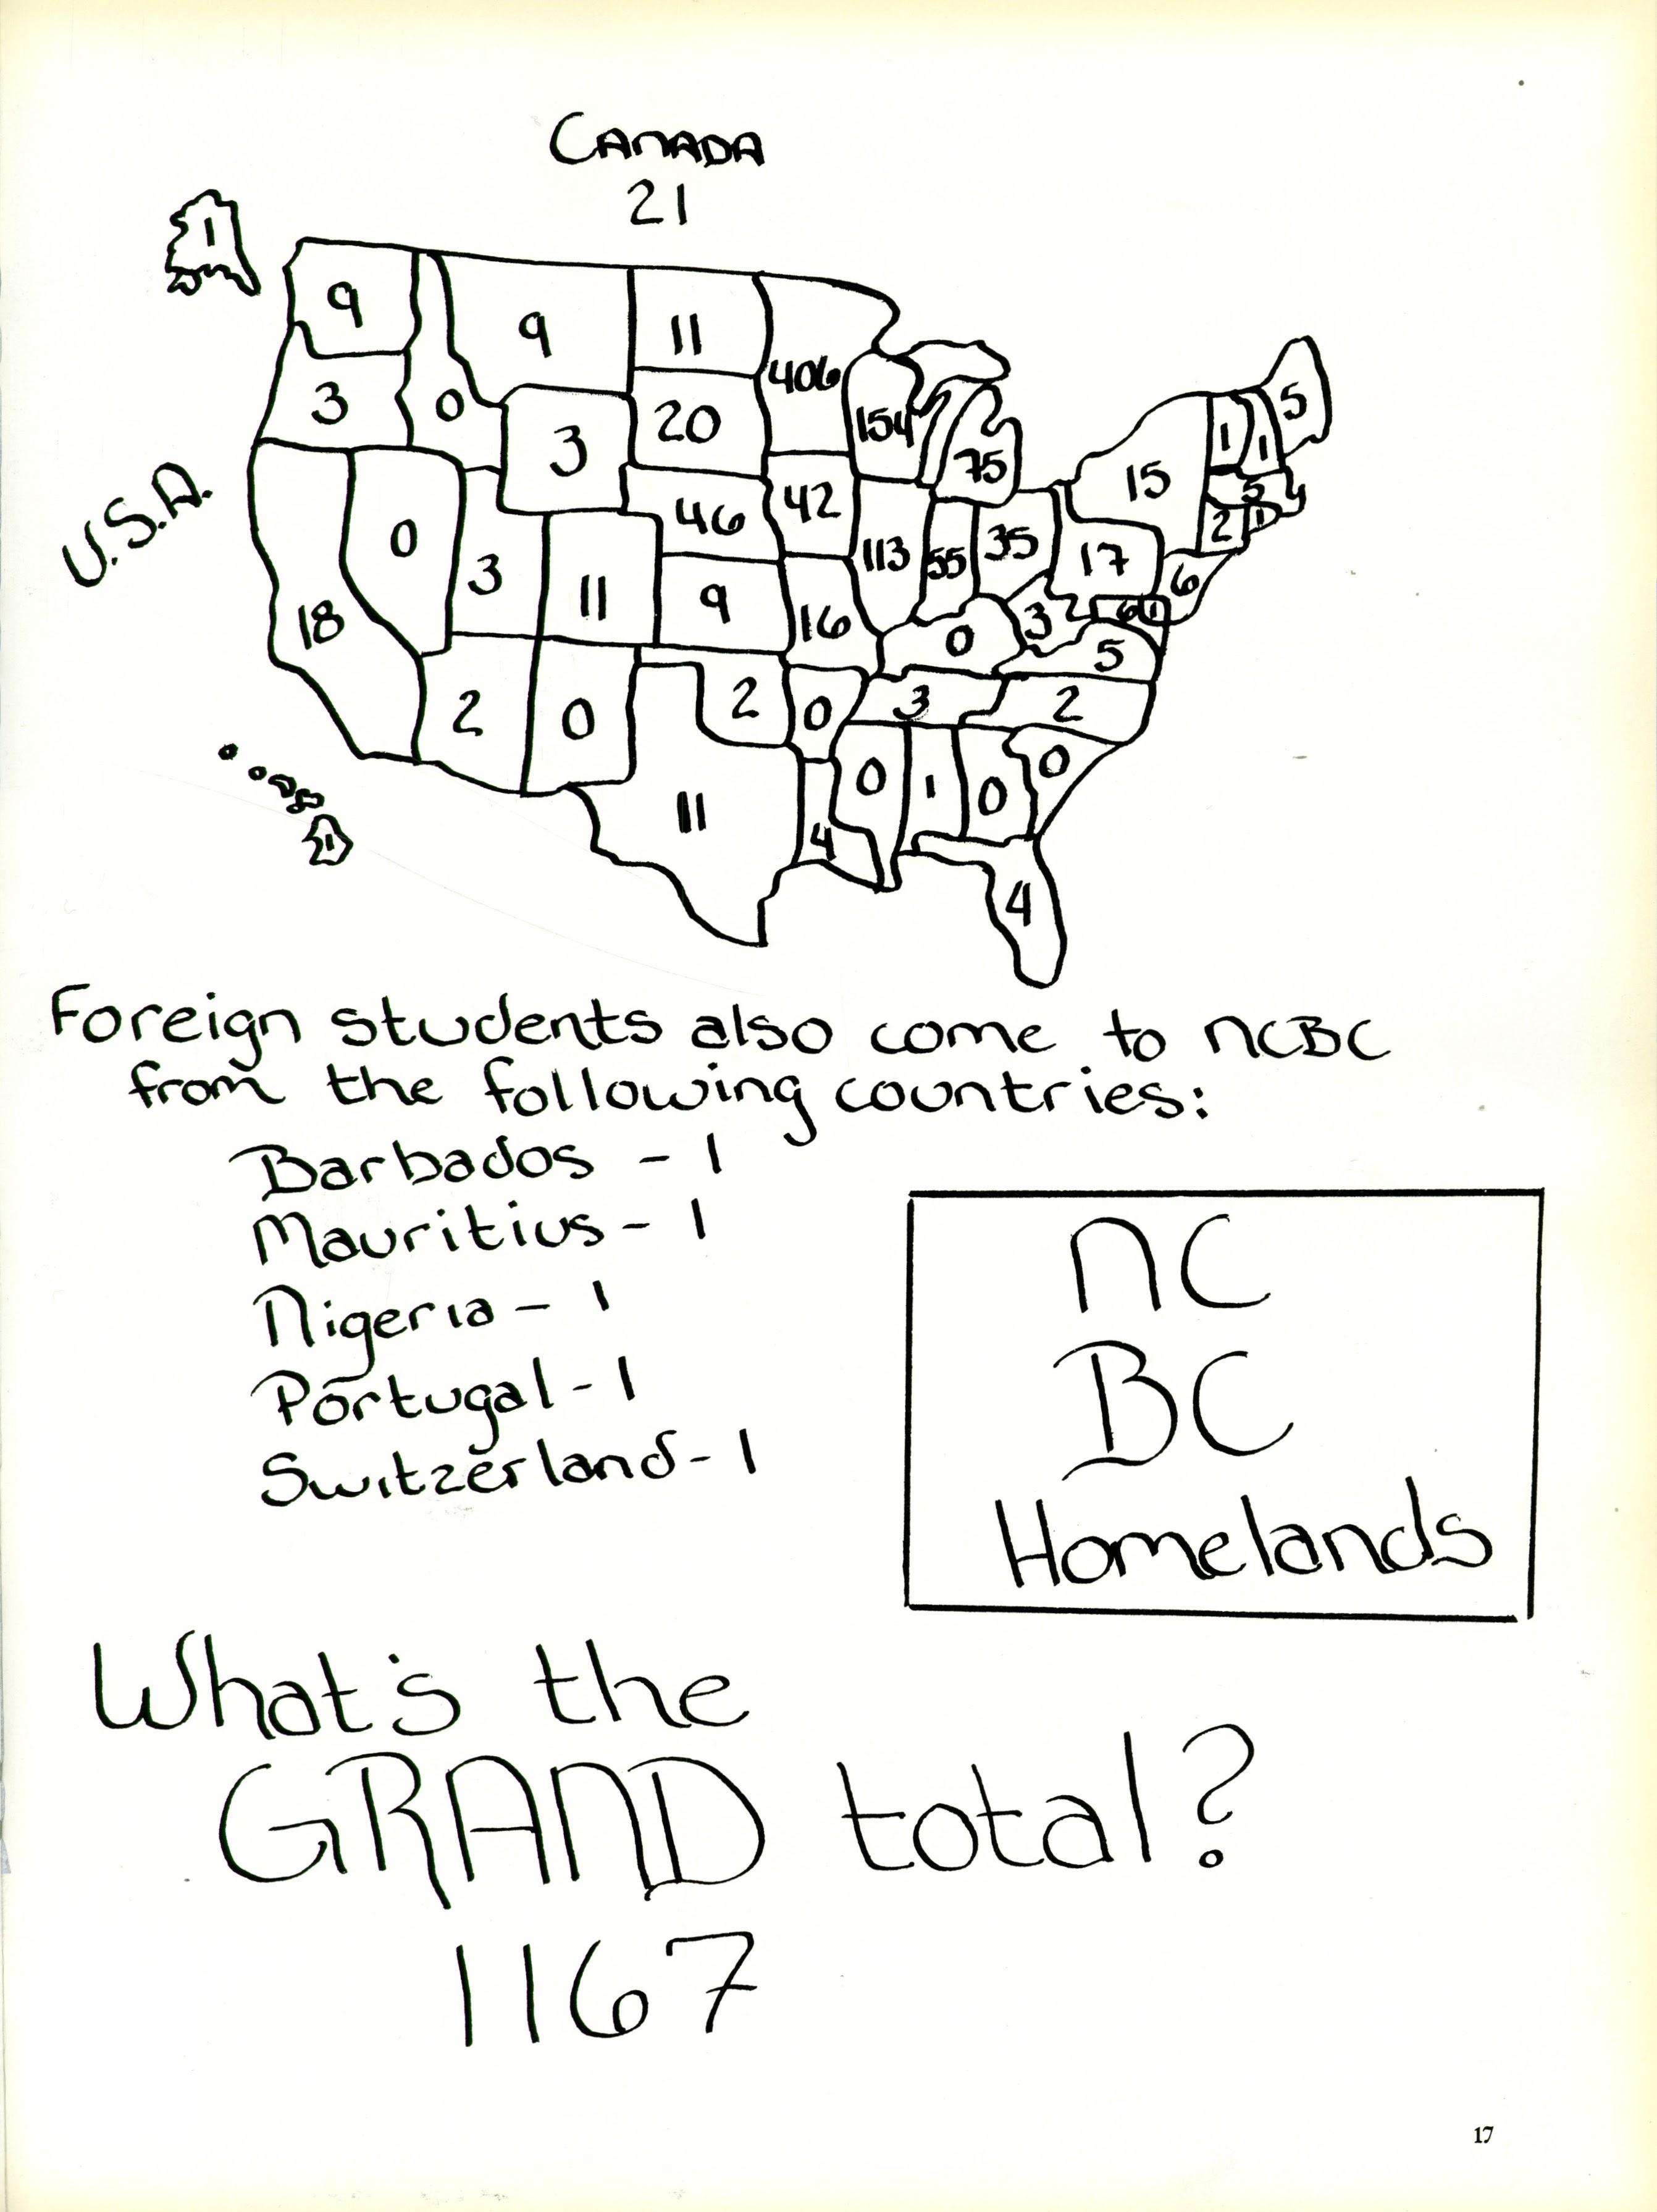 CANADA
21
U.S.A.
1
9
9
11
406
3
0
3
20
154
75
5
1
1
15
5
2
1
18
0
3
11
46
42
113
55
35
17
6
9
16
0
3
6
1
5
2
0
2
0
3
2
11
4
0
1
0
0
4
1
Foreign students also come to NCBC
from the following countries:
Barbados - 1
Mauritius - 1
Nigeria - 1
Portugal - 1
Switzerland - 1
NC
BC
Homelands
What's the
GRAND total?
1167
17